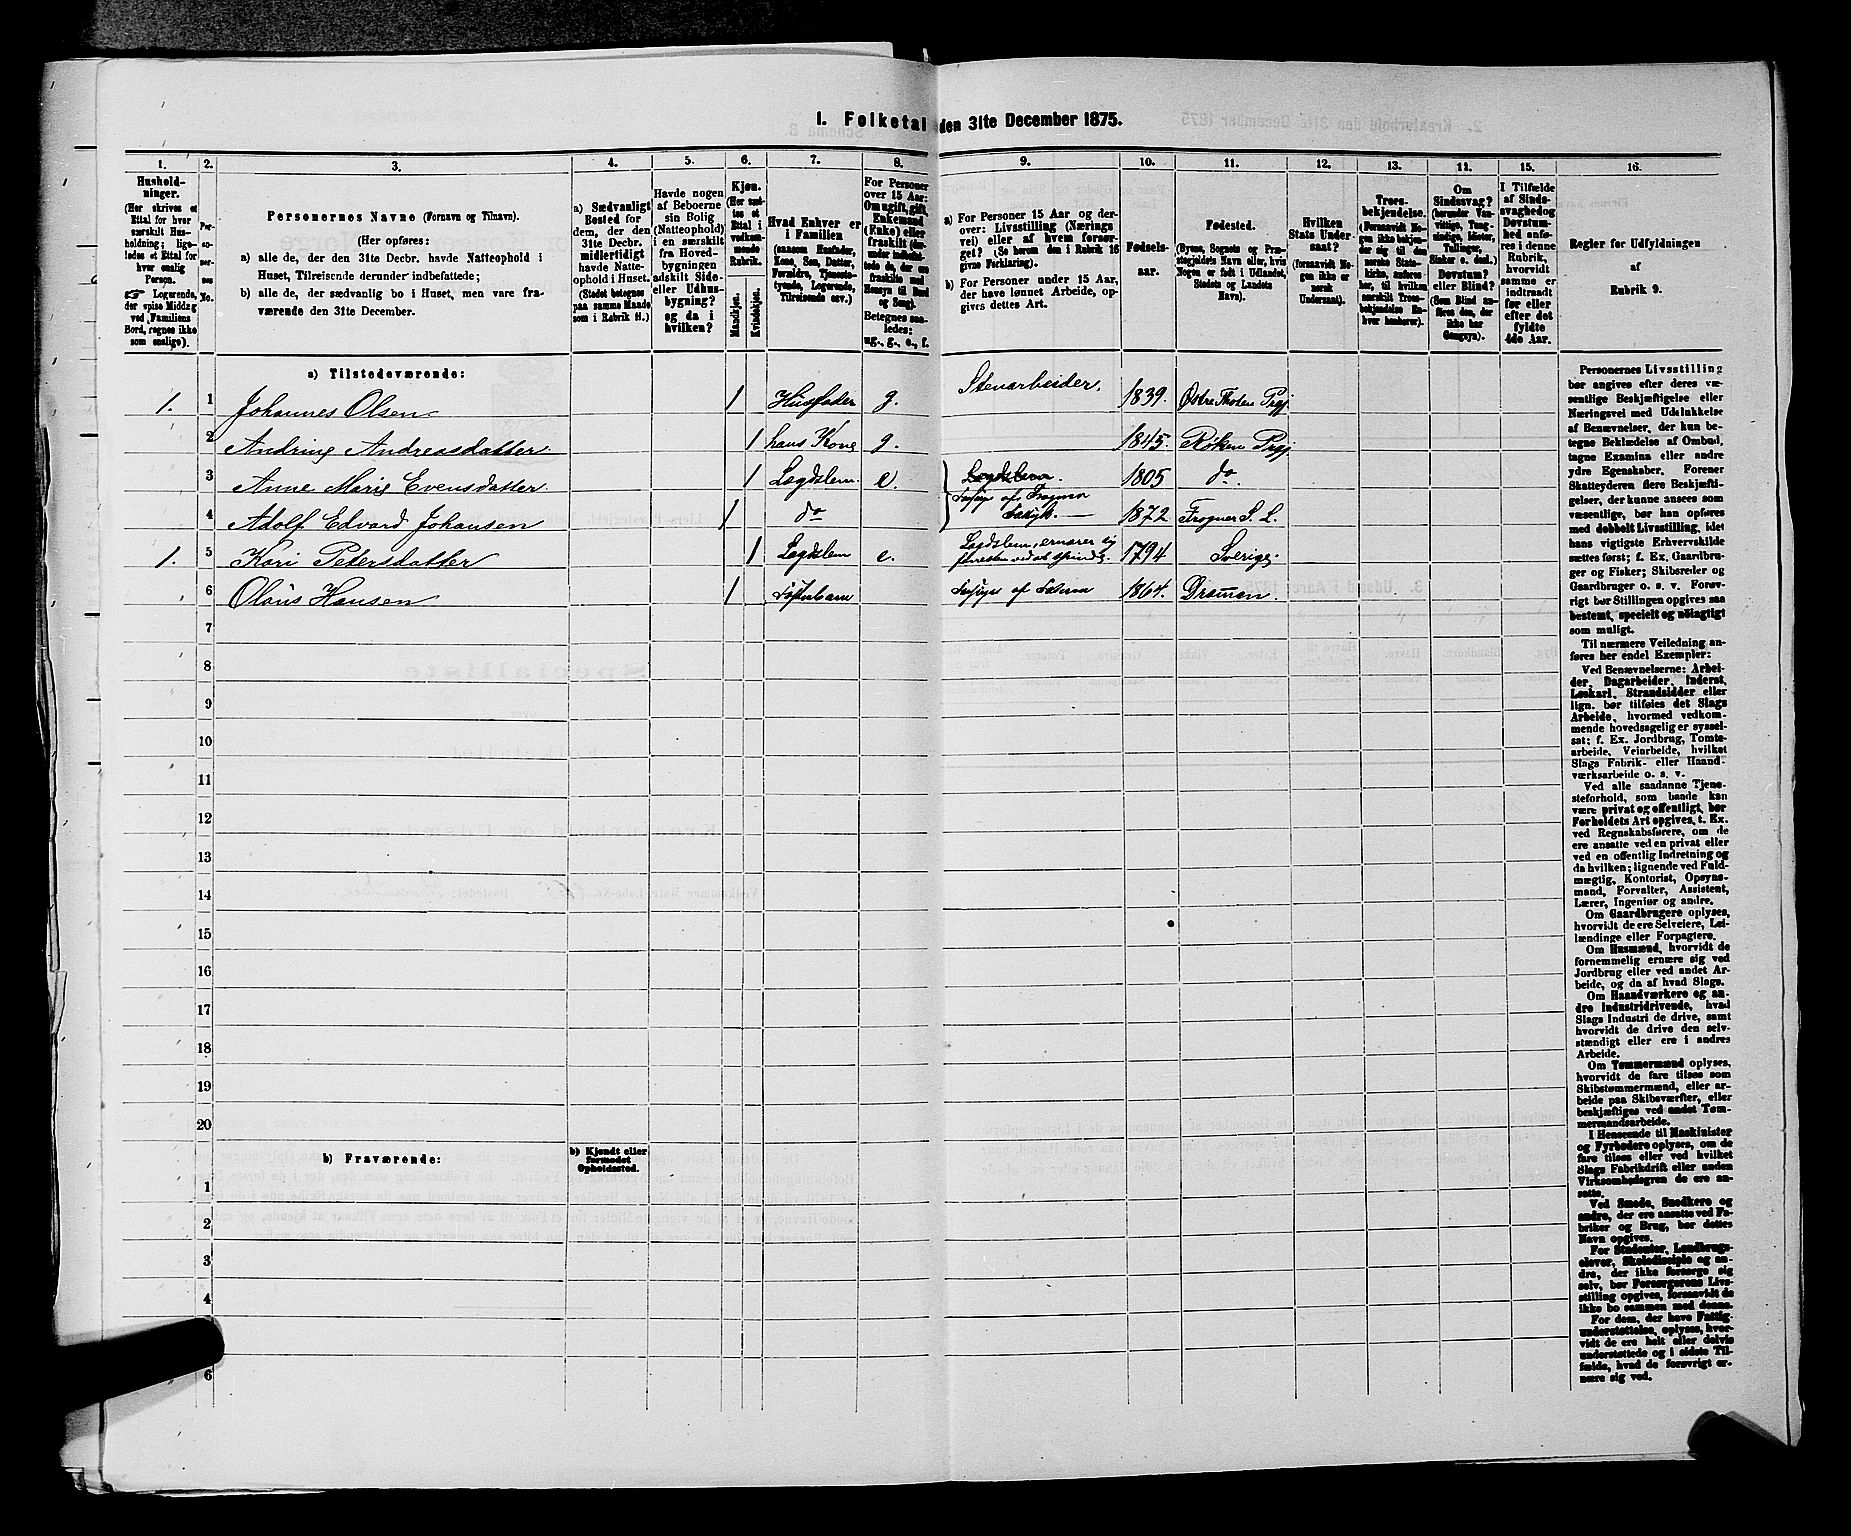 I. Folketal den 31te December 1875.
1. 2. 3. 4. 5. 6. 7. 8. 9. 10. 11. 12. 13. 14. 15. 16.
Hushold-
ninger.
(Her skrives et
Ettal for hver
særskilt Hus-
holdning; lige-
ledes et Ettal for
hver enslig
Person.
Logerende,
der spise Middag
ved Familiens
Bord, regnes ikke
som enslige).
Per-
so-
ner-
nes
No.
Personernes Navne (Fornavn og Tilnavn).
(Her opføres:
a) alle de, der den 31te Decbr. havde Natteophold i
Huset, Tilreisende derunder indbefattede;
b) alle de, der sædvanlig bo i Huset, men vare fra-
værende den 31te December.
a) Sædvanligt
Bosted for
dem, der den
31te Decbr.
midlertidigt
havde Natte-
ophold i Huset.
(Stedet betegnes
paa samme Maade
som i Rubrik 11.)
Havde nogen
af Beboerne
sin Bolig
(Natteophold)
i en særskilt
fra Hoved-
bygningen
adskilt Side-
eller Udhus-
bygning?
og da i
hvilken?
Kjøn.
(Her sæt-
tes et
Ettal i
vedkom-
mende
Rubrik.
Mandkjøn.
Kvindekjøn.
Hvad Enhver er
i Familien
(saasom Husfader,
Kone, Søn, Datter,
Forældre, Tjeneste-
tyende, Logerende,
Tilreisende osv.)
For Personer
over 15 Aar:
Om ugift, gift,
Enkemand
(Enke) eller
fraskilt (der-
under indbefat-
tede de, der ere
fraskilte med
Hensyn til Bord
og Seng).
Betegnes saa-
ledes:
ug., g., e., f.
a) For Personer 15 Aar og der-
over: Livsstilling (Nærings
vei) eller af hvem forsør-
get? (Se herom den i Rubrik 16
givne Forklaring).
b) For Personer under 15 Aar,
der have lønnet Arbeide, op-
gives dettes Art.
Fødsels-
aar.
Fødested.
(Byens, Sognets og Præ-
stegjeldets Navn eller, hvis
Nogen er født i Udlandet,
Stedets og Landets
Navn).
Hvilken
Stats Under-
saat?
(forsaavidt No-
gen ikke er
norsk
Undersaat).
Troes-
bekjendelse.
(Forsaavidt No-
gen ikke bekjen-
der sig til den
norske Stats-
kirke, anføres
her, til hvilken
særskilt Troes-
bekjendelse En-
hver henhører).
Om
Sindssvag?
(herunder Van-
vittige, Tung-
sindige, Idioter,
Tullinger,
Sinker o. desl.)
Døvstum?
eller Blind?
(Som Blind an-
føres den, der
ikke har
Gangsyn).
I Tilfælde
af Sinds-
svaghed og
Døvstum-
hed anfø-
res i denne
Rubrik,
hvorvidt
samme er
indtraadt
før eller
efter det
fyldte
4de Aar.
Regler for Udfyldningen
af
Rubrik 9.
a) Tilstedeværende:
1. 1 Johannes Olsen 1 Husfader g. Stenarbeider. 1839. Østre Thoten Prgj
2 Andrine Andreasdatter 1 hans Kone g. 1845. Røken Prgj
3 Anne Marie Evensdatter 1 Lægdslem. e. Lægdslem. 1805 do
4 Adolf Edvard Johansen 1 do forsørges af Fattigk. 1872 Frogner S. L.
1. 5 Kari Petersdatter 1 Lægdslem e. Lægdslem, ernærer sig forresten ved at spinde. 1794 Sverige
6 Olaus Hansen 1 1864. Dramen.
7
8
9
10
11
12
13
14
15
16
17
18
19
20
b) Fraværende:
b) Kjendt eller
formodet
Opholdssted.
1
2
3
4
6
Personernes Livsstilling
bør angives efter deres væ-
sentlige Beskjæftigelse eller
Næringsvei med Udelukkelse
af Benævnelser, der kun be-
tegne Beklædelse af Ombud,
tagne Examina eller andre
ydre Egenskaber. Forener
Skatteyderen flere Beskjæfti-
gelser, der kunne ansees som
væsentlige, bør han opføres
med dobbelt Livsstilling, idet
hans vigtigste Erhvervskilde
sættes først; f. Ex. Gaardbru-
ger og Fisker; Skibsreder og
Gaardbruger o. s. v. Forøv-
rigt bør Stillingen opgives saa
bestemt, specielt og nøiagtigt
som muligt.
Til nærmere Veiledning an-
føres her endel Exempler:
Ved Benævnelserne: Arbei-
der, Dagarbeider, Inderst,
Løskarl, Strandsidder eller
lign. bør tilføies det Slags
Arbeide, hvormed vedkom-
mende hovedsagelig er syssel-
sat; f. Ex. Jordbrug, Tomte-
arbeide, Veiarbeide, hvilket
Slags Fabrik- eller Haand-
værksarbeide o. s. v.
Ved alle saadanne Tjene-
steforhold, som baade kan
være privat og offentligt, bør
Forholdets Art opgives, t. Ex.
ved Regnskabsførere, om de
ere ansatte ved en privat eller
ved en offentlig Indretning og
da hvilken; lignende ved Fuld-
mægtig, Kontorist, Opsyns-
mand, Forvalter, Assistent,
Lærer, Ingeniør og andre.
Om Gaardbrugere oplyses,
hvorvidt de ere Selveiere, Lei-
lændinge eller Forpagtere.
Om Husmænd, hvorvidt de
fornemmelig ernære sig ved
Jordbrug eller ved andet Ar-
beide, og da af hvad Slags.
Om Haandværkere og an-
dre Industridrivende, hvad
Slags Industri de drive, samt
hvorvidt de drive den selv-
stændigt eller ere i andres
Arbeide.
Om Tømmermænd oplyses,
hvorvidt de fare tilsøs som
Skibstømmermænd, eller ar-
beide paa Skibsværfter, eller
beskjæftiges ved andet Tøm-
mermandsarbeide.
I Henseende til Maskinister
og Fyrbødere oplyses, om de
fare tilsøs eller ved hvilket
Slags Fabrikdrift eller anden
Virksomhedsgren de ere an-
satte.
Ved Smede, Snedkere og
andre, der ere ansatte ved Fa-
briker og Brug, bør dettes
Navn opgives.
For Studenter, Landbrugs-
elever, Skoledisciple og an-
dre, der ikke forsørge sig
selv, bør Forsørgerens Livs-
stilling opgives, forsaavidt de
ikke bo sammen med denne.
For dem, der have Fattig-
understøttelse, oplyses, hvor-
vidt de ere helt eller delvis
understøttede og i sidste Til-
fælde, hvad de forøvrigt er-
nære sig ved.